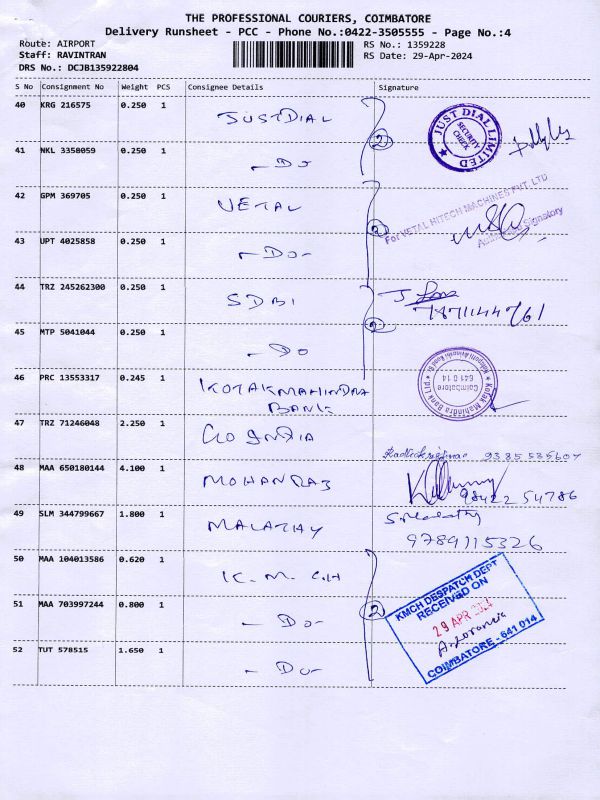 THE PROFESSIONAL COURIERS, COIMBATORE
Delivery Runsheet - PCC - Phone No.:0422-3505555 - Page No.:4
Route: AIRPORT
RS No.: 1359228
Staff: RAVINTRAN
RS Date: 29-Apr-2024
DRS No.: DCJB135922804
S No Consignment No Weight PCS Consignee Details Signature
40 KRG 216575 0.250 1 JUSTDIAL
JUST DIAL LIMITED
SECURITY CHECK
2
41 NKL 3358059 0.250 1 - Do
42 GPM 369705 0.250 1 VETAL
For VETAL HITECH MACHINES PVT. LTD
Authorised Signatory
2
43 UPT 4025858 0.250 1 - Do -
44 TRZ 245262300 0.250 1 SDBI
7871144761
2
45 MTP 5041044 0.250 1 - Do
46 PRC 13553317 0.245 1 KOTAKMAHINDRA
BANK
Kotak Mahindra Bank Ltd
Coimbatore
641 014
47 TRZ 71246048 2.250 1 GO INDIA
Radhakrishnan 9385535607
48 MAA 650180144 4.100 1 MOHANRAJ
98422 54786
49 SLM 344799667 1.800 1 MALATHY
S. Malathy
9789115326
50 MAA 104013586 0.620 1 K. M. C.H
KMCH DESPATCH DEPT
RECEIVED ON
29 APR 2024
COIMBATORE - 641 014
2
51 MAA 703997244 0.800 1 - Do -
52 TUT 578515 1.650 1 - Do -